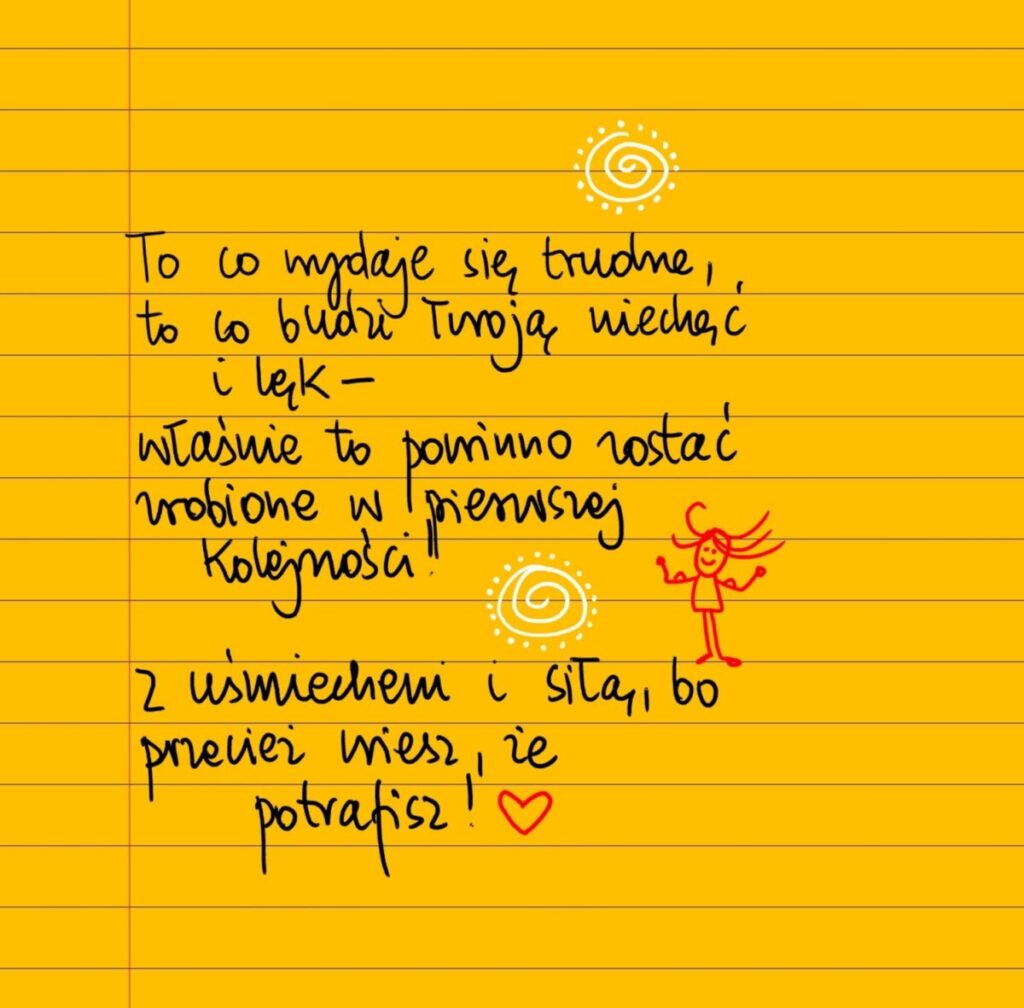 To co wydaje się trudne,
to co budzi Twoją niechęć
i lęk –
właśnie to powinno zostać
zrobione w pierwszej
kolejności!!
Z uśmiechem i siłą, bo
przecież wiesz, że
potrafisz!